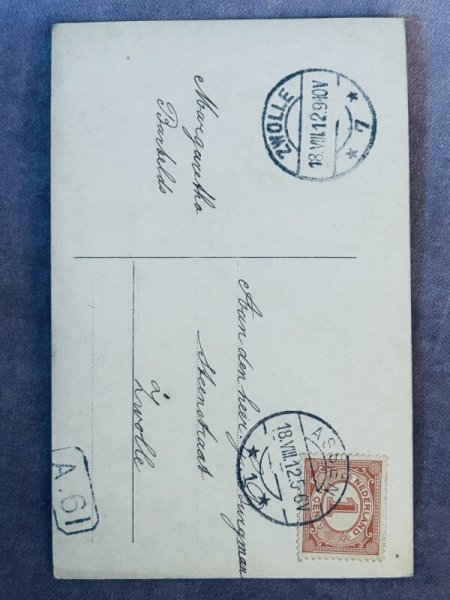 Margaretha
Bartelds
ZWOLLE
18.VIII.12.9-10V
Aan den heer Burgman
Steenstraat
Zwolle
ASSEN
18.VIII.12.5-6V
NEDERLAND
1
CENT
A.61